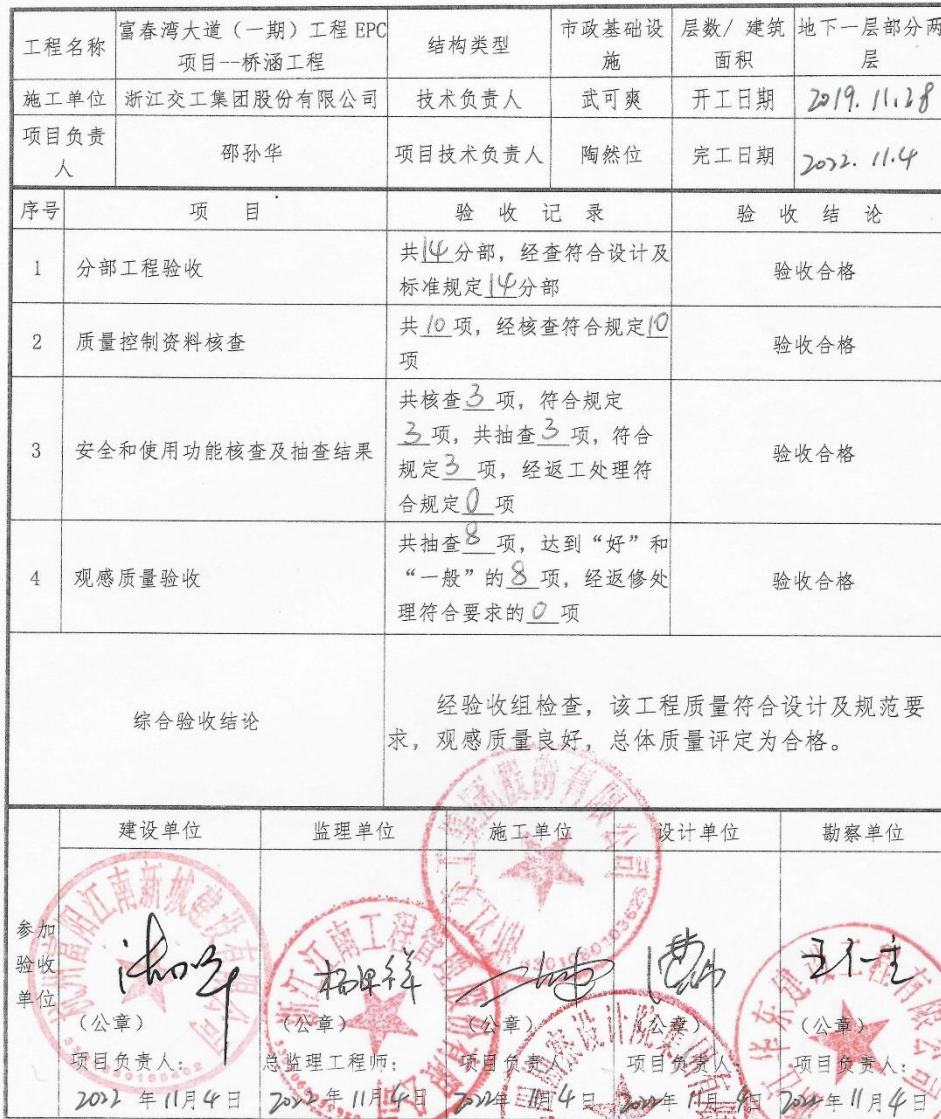 工程名称 富春湾大道（一期）工程 EPC 项目--桥涵工程 结构类型 市政基础设施 层数/ 建筑面积 地下一层部分两层
施工单位 浙江交工集团股份有限公司 技术负责人 武可爽 开工日期 2019.11.28
项目负责人 邵孙华 项目技术负责人 陶然位 完工日期 2022.11.4
序号 项 目 验 收 记 录 验 收 结 论
1 分部工程验收 共14分部，经查符合设计及标准规定14分部 验收合格
2 质量控制资料核查 共10项，经核查符合规定10项 验收合格
3 安全和使用功能核查及抽查结果 共核查3项，符合规定3项，共抽查3项，符合规定3项，经返工处理符合规定0项 验收合格
4 观感质量验收 共抽查8项，达到“好”和“一般”的8项，经返修处理符合要求的0项 验收合格
综合验收结论 经验收组检查，该工程质量符合设计及规范要求，观感质量良好，总体质量评定为合格。
参加验收单位
建设单位 监理单位 施工单位 设计单位 勘察单位
（公章） （公章） （公章） （公章）
项目负责人： 总监理工程师： 项目负责人： 项目负责人： 项目负责人：
2022年11月4日 2022年11月4日 2022年11月4日 2022年11月4日 2022年11月4日